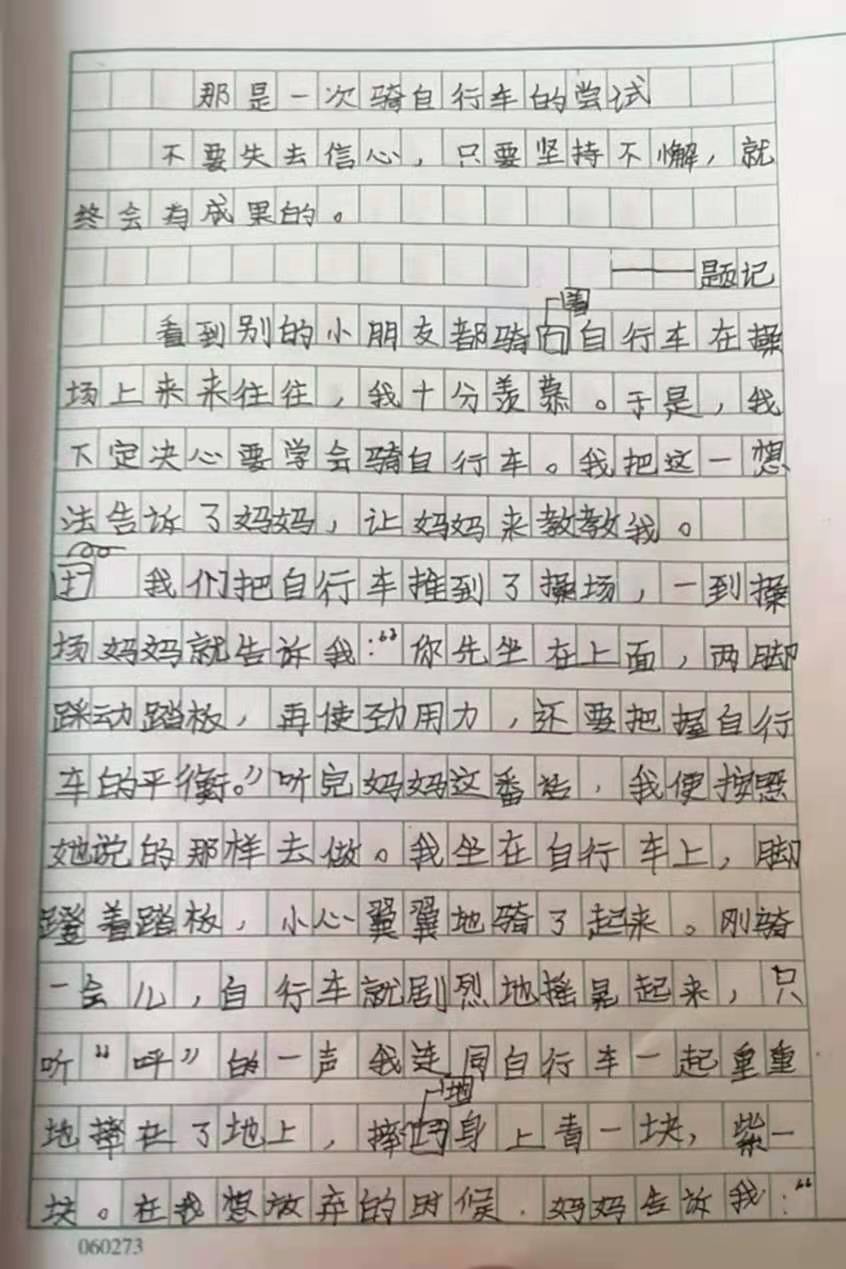 那是一次骑自行车的尝试
不要失去信心，只要坚持不懈，就
终会有成果的。
——题记
着
看到别的小朋友都骑自行车在操
场上来来往往，我十分羡慕。于是，我
下定决心要学会骑自行车。我把这一想
法告诉了妈妈，让妈妈来教教我。
我们把自行车推到了操场，一到操
场妈妈就告诉我：“你先坐在上面，两脚
踩动踏板，再使劲用力，还要把握自行
车的平衡。”听完妈妈这番话，我便按照
她说的那样去做。我坐在自行车上，脚
蹬着踏板，小心翼翼地骑了起来。刚骑
一会儿，自行车就剧烈地摇晃起来，只
听“呯”的一声我连同自行车一起重重
地
地摔在了地上，摔身上青一块，紫一
块。在我想放弃的时候，妈妈告诉我：“
060273